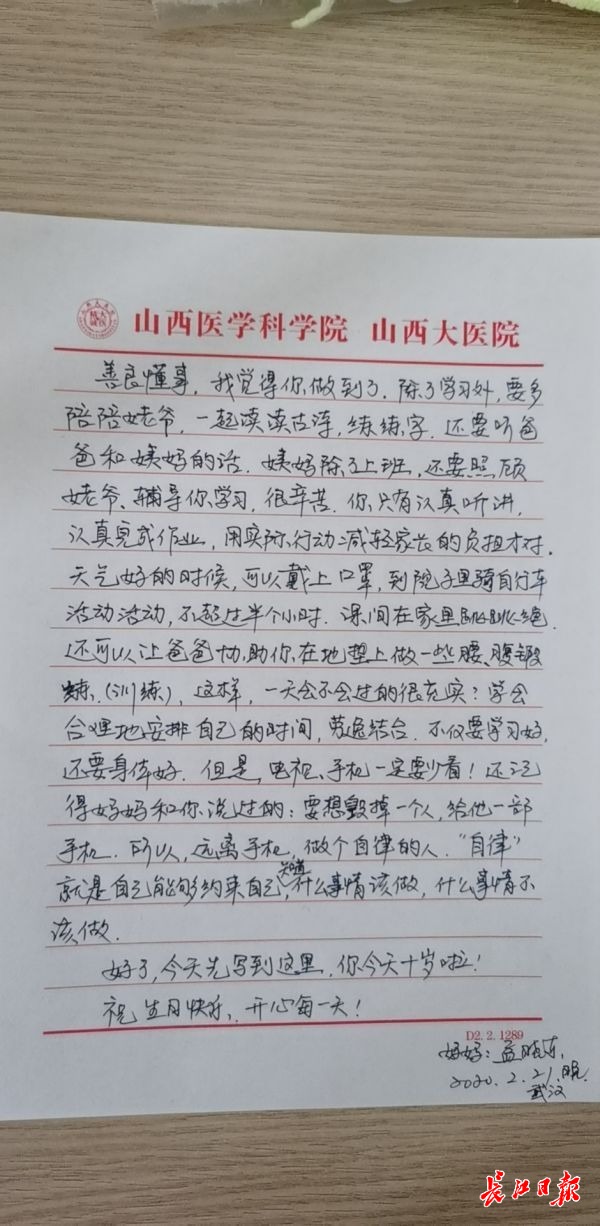 山西医学科学院 山西大医院
善良懂事，我觉得你做到了。除了学习外，要多
陪陪姥爷，一起读读古诗，练练字。还要听爸
爸和姨妈的话。姨妈除了上班，还要照顾
姥爷、辅导你学习，很辛苦。你只有认真听讲，
认真完成作业，用实际行动减轻家长的负担才对。
天气好的时候，可以戴上口罩，到院子里骑自行车
活动活动，不超过半个小时。课间在家里跳跳绳。
还可以让爸爸协助你在地垫上做一些腰、腹锻
炼（训练），这样，一天会不会过的很充实？学会
合理地安排自己的时间，劳逸结合。不仅要学习好，
还要身体好。但是，电视、手机一定要少看！还记
得妈妈和你说过的：要想毁掉一个人，给他一部
手机。所以，远离手机，做个自律的人。“自律”
就是自己能够约束自己，知道什么事情该做，什么事情不
该做。
好了，今天先写到这里，你今天十岁啦！
祝 生日快乐，开心每一天！
D2.2.1289
妈妈：孟晓东
2020.2.21.晚.
武汉
长江日报